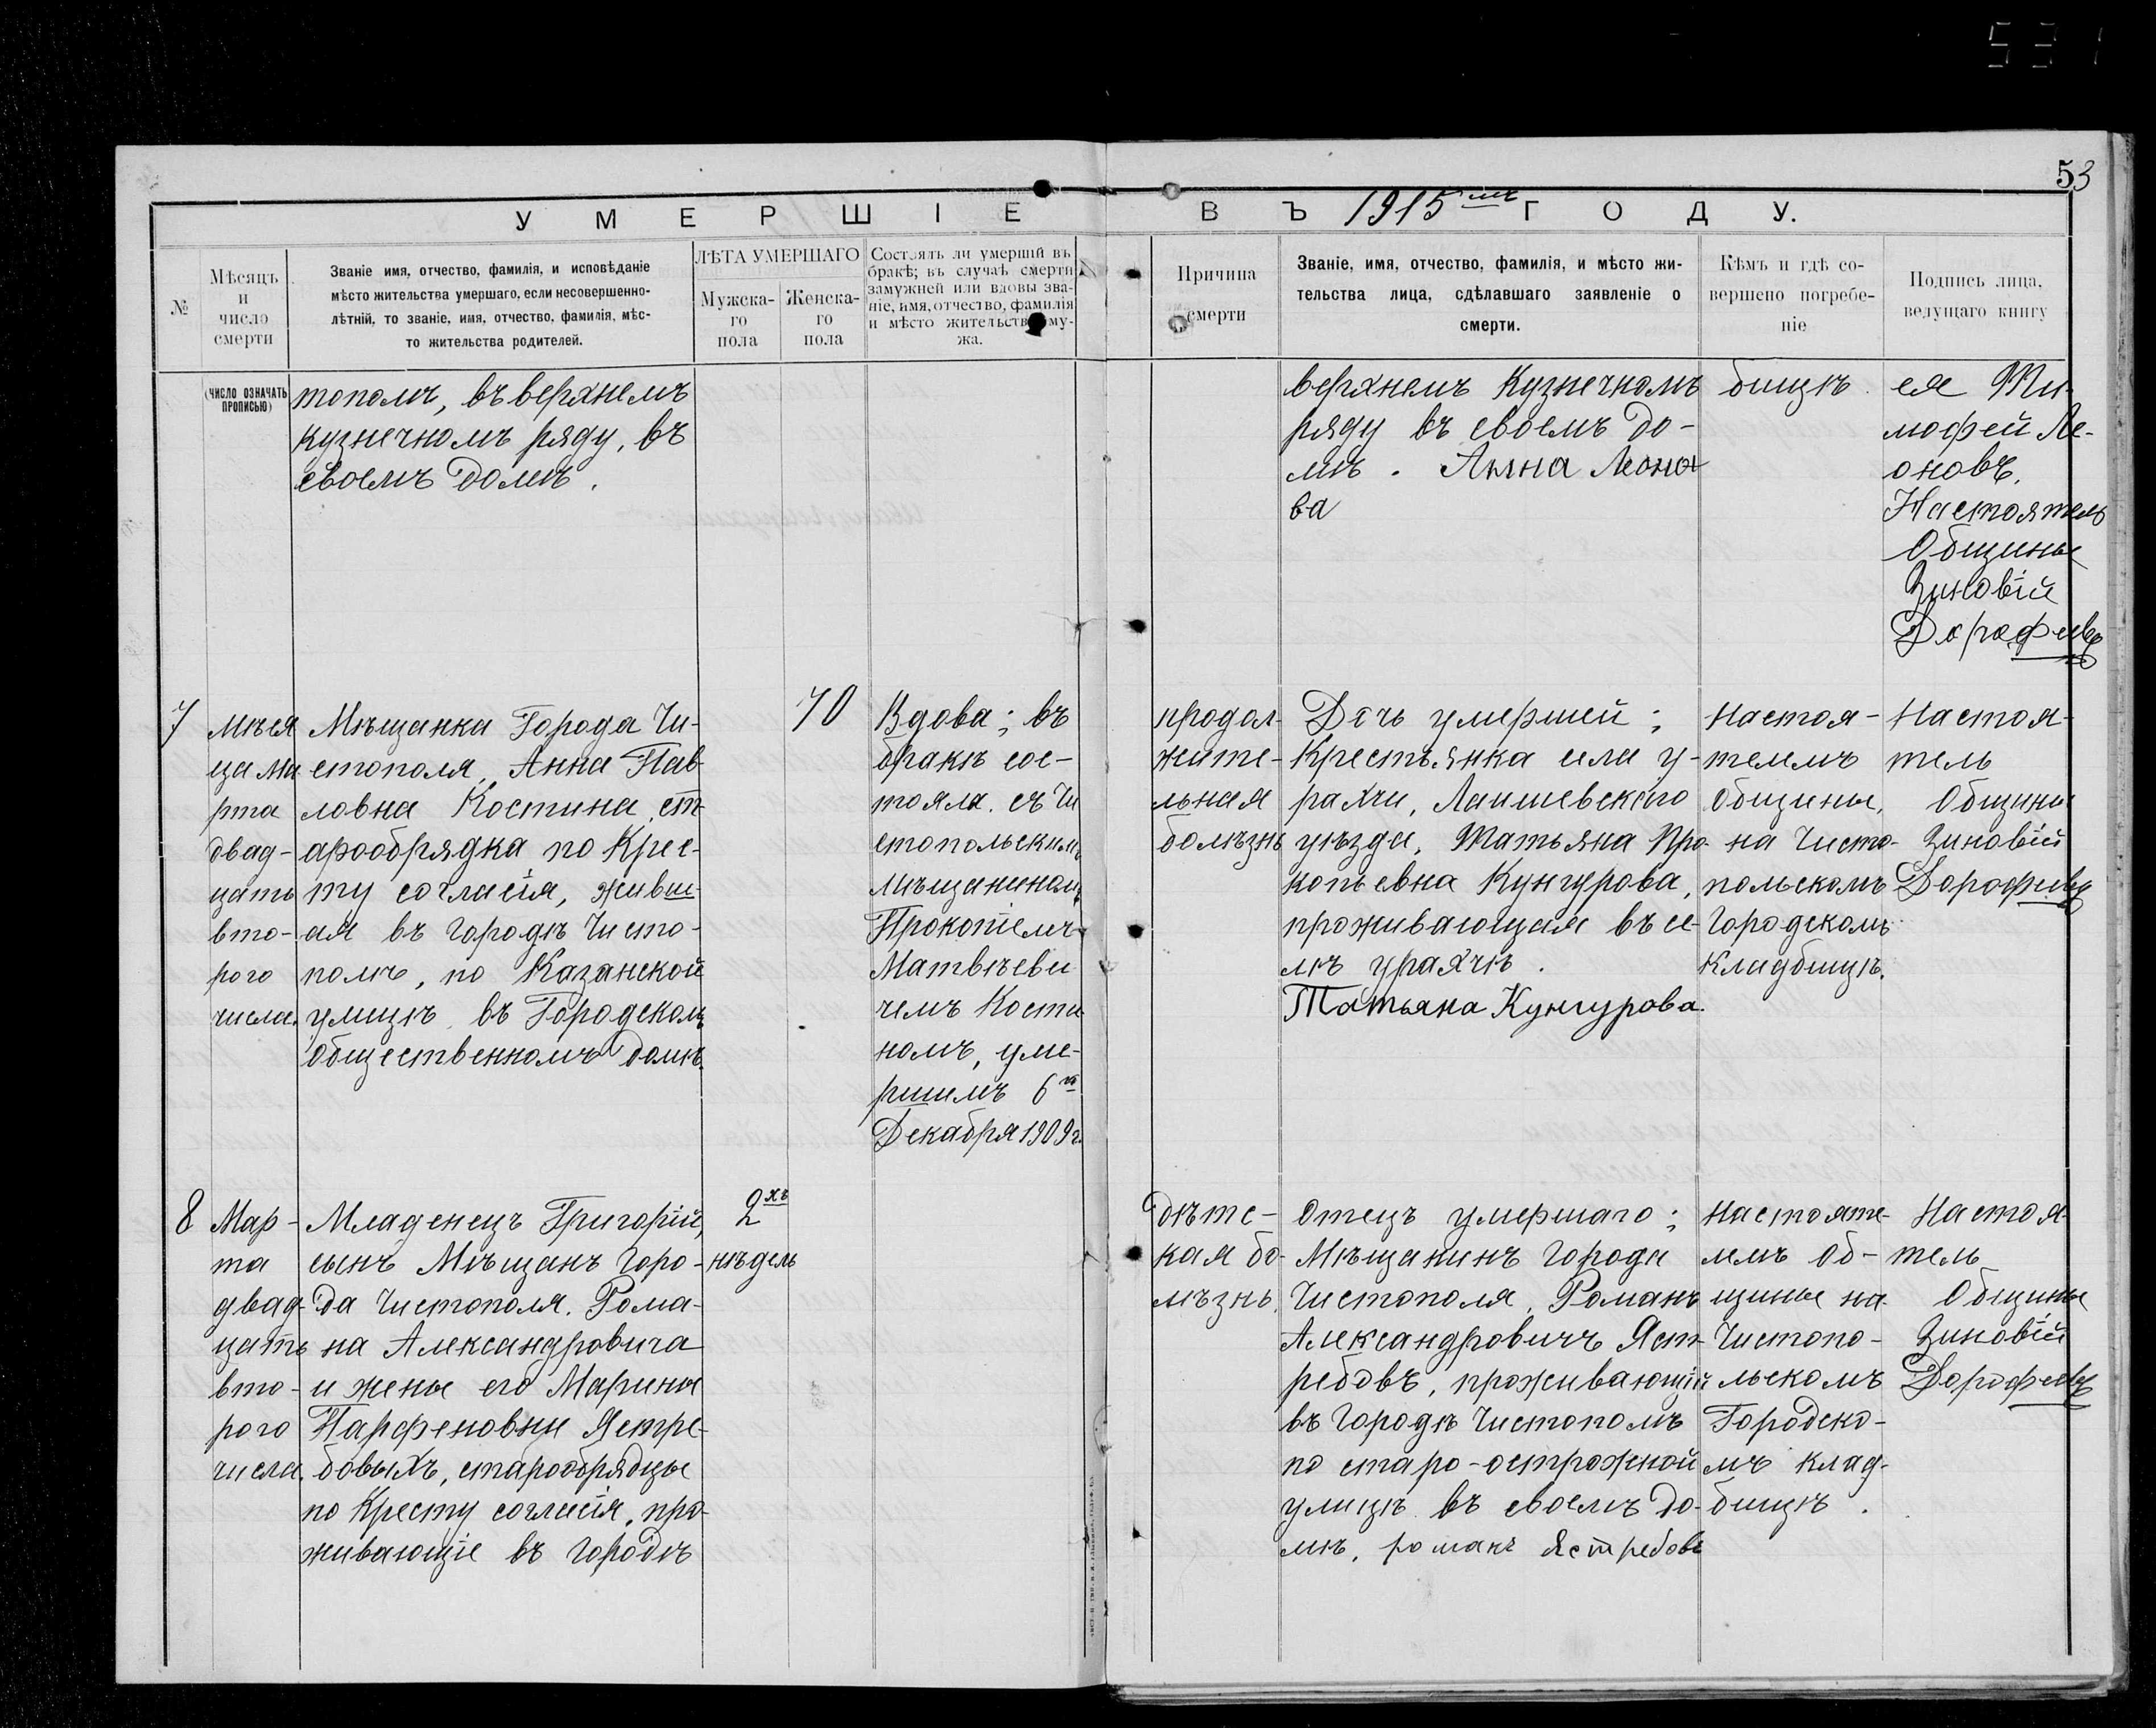 531
53
УМЕРШІЕ
ВЪ 1915мъ ГОДУ.
№
Мѣсяцъ
и
число
смерти
Званіе имя, отчество, фамилія, и исповѣданіе
мѣсто жительства умершаго, если несовершенно-
лѣтній, то званіе, имя, отчество, фамилія, мѣс-
то жительства родителей.
ЛѢТА УМЕРШАГО
Мужска-
го
пола
Женска-
го
пола
Состоялъ ли умершій въ
бракѣ; въ случаѣ смерти
замужней или вдовы зва-
ніе, имя, отчество, фамилія
и мѣсто жительств му-
жа.
Причина
смерти
Званіе, имя, отчество, фамилія, и мѣсто жи-
тельства лица, сдѣлавшаго заявленіе о
смерти.
Кѣмъ и гдѣ со-
вершено погребе-
ніе
Подпись лица,
ведущаго книгу
(ЧИСЛО ОЗНАЧАТЬ
ПРОПИСЬЮ)
тополѣ, въ верхнемъ
кузнечномъ ряду, въ
своемъ домѣ.
верхнемъ Кузнечномъ
ряду въ своемъ до-
мѣ. Анна Леоно
ва
бищѣ.
ея Ти-
мофей Ле-
оновъ.
Настоятель
Общины
Зиновій
Дорофеевъ
7
мѣся
ца Ма
рта
двад-
цать
вто-
рого
числа.
Мѣщанка Города Чи-
стополя, Анна Пав-
ловна Костина, ст-
арообрядка по Крес-
ту согласія, живш-
ая въ Городѣ Чисто-
полѣ, по Казанской
улицѣ, въ Городскомъ
Общественномъ домѣ.
70
Вдова; въ
бракѣ сос-
тояла съ Чи
стопольскимъ
мѣщаниномъ
Прокопіемъ
Матвѣеви
чемъ Кости
номъ, уме-
ршимъ 6го
Декабря 1909 г.
продол-
жите-
льная
болѣзнь
Дочь умершей;
Крестьянка села у-
рахчи, Лаишевского
уѣзда, Татьяна Про-
копьевна Кунгурова,
проживающая въ се-
лѣ урахчѣ.
Татьяна Кунгурова.
Настоя-
телемъ
Общины,
на Чисто-
польскомъ
Городскомъ
Кладбищѣ.
Настоя-
тель
Общины
Зиновій
Дорофеевъ
8
Мар-
та
двад-
цать
вто-
рого
числа.
Младенецъ Григорій,
сынъ Мѣщанъ Горо-
да Чистополя. Рома-
на Александровича
и жены его Марины
Парфеновны Ястре-
бовыхъ, старообрядцы
по Кресту согласія, про-
живающіе въ Городѣ
2хъ
нѣдель
дѣтс-
кая бо-
лѣзнь.
Отецъ умершаго;
Мѣщанинъ Города
Чистополя, Романъ
Александровичъ Яст-
ребовъ, проживающій
въ Городѣ Чистополѣ
по старо-острожной
улицѣ въ своемъ до-
мѣ, романъ Ястребовъ
Настояте-
лемъ Об-
щины на
Чистопо-
льскомъ
Городско-
мъ клад-
бищѣ.
Настоя-
тель
Общины
Зиновій
Дорофеевъ